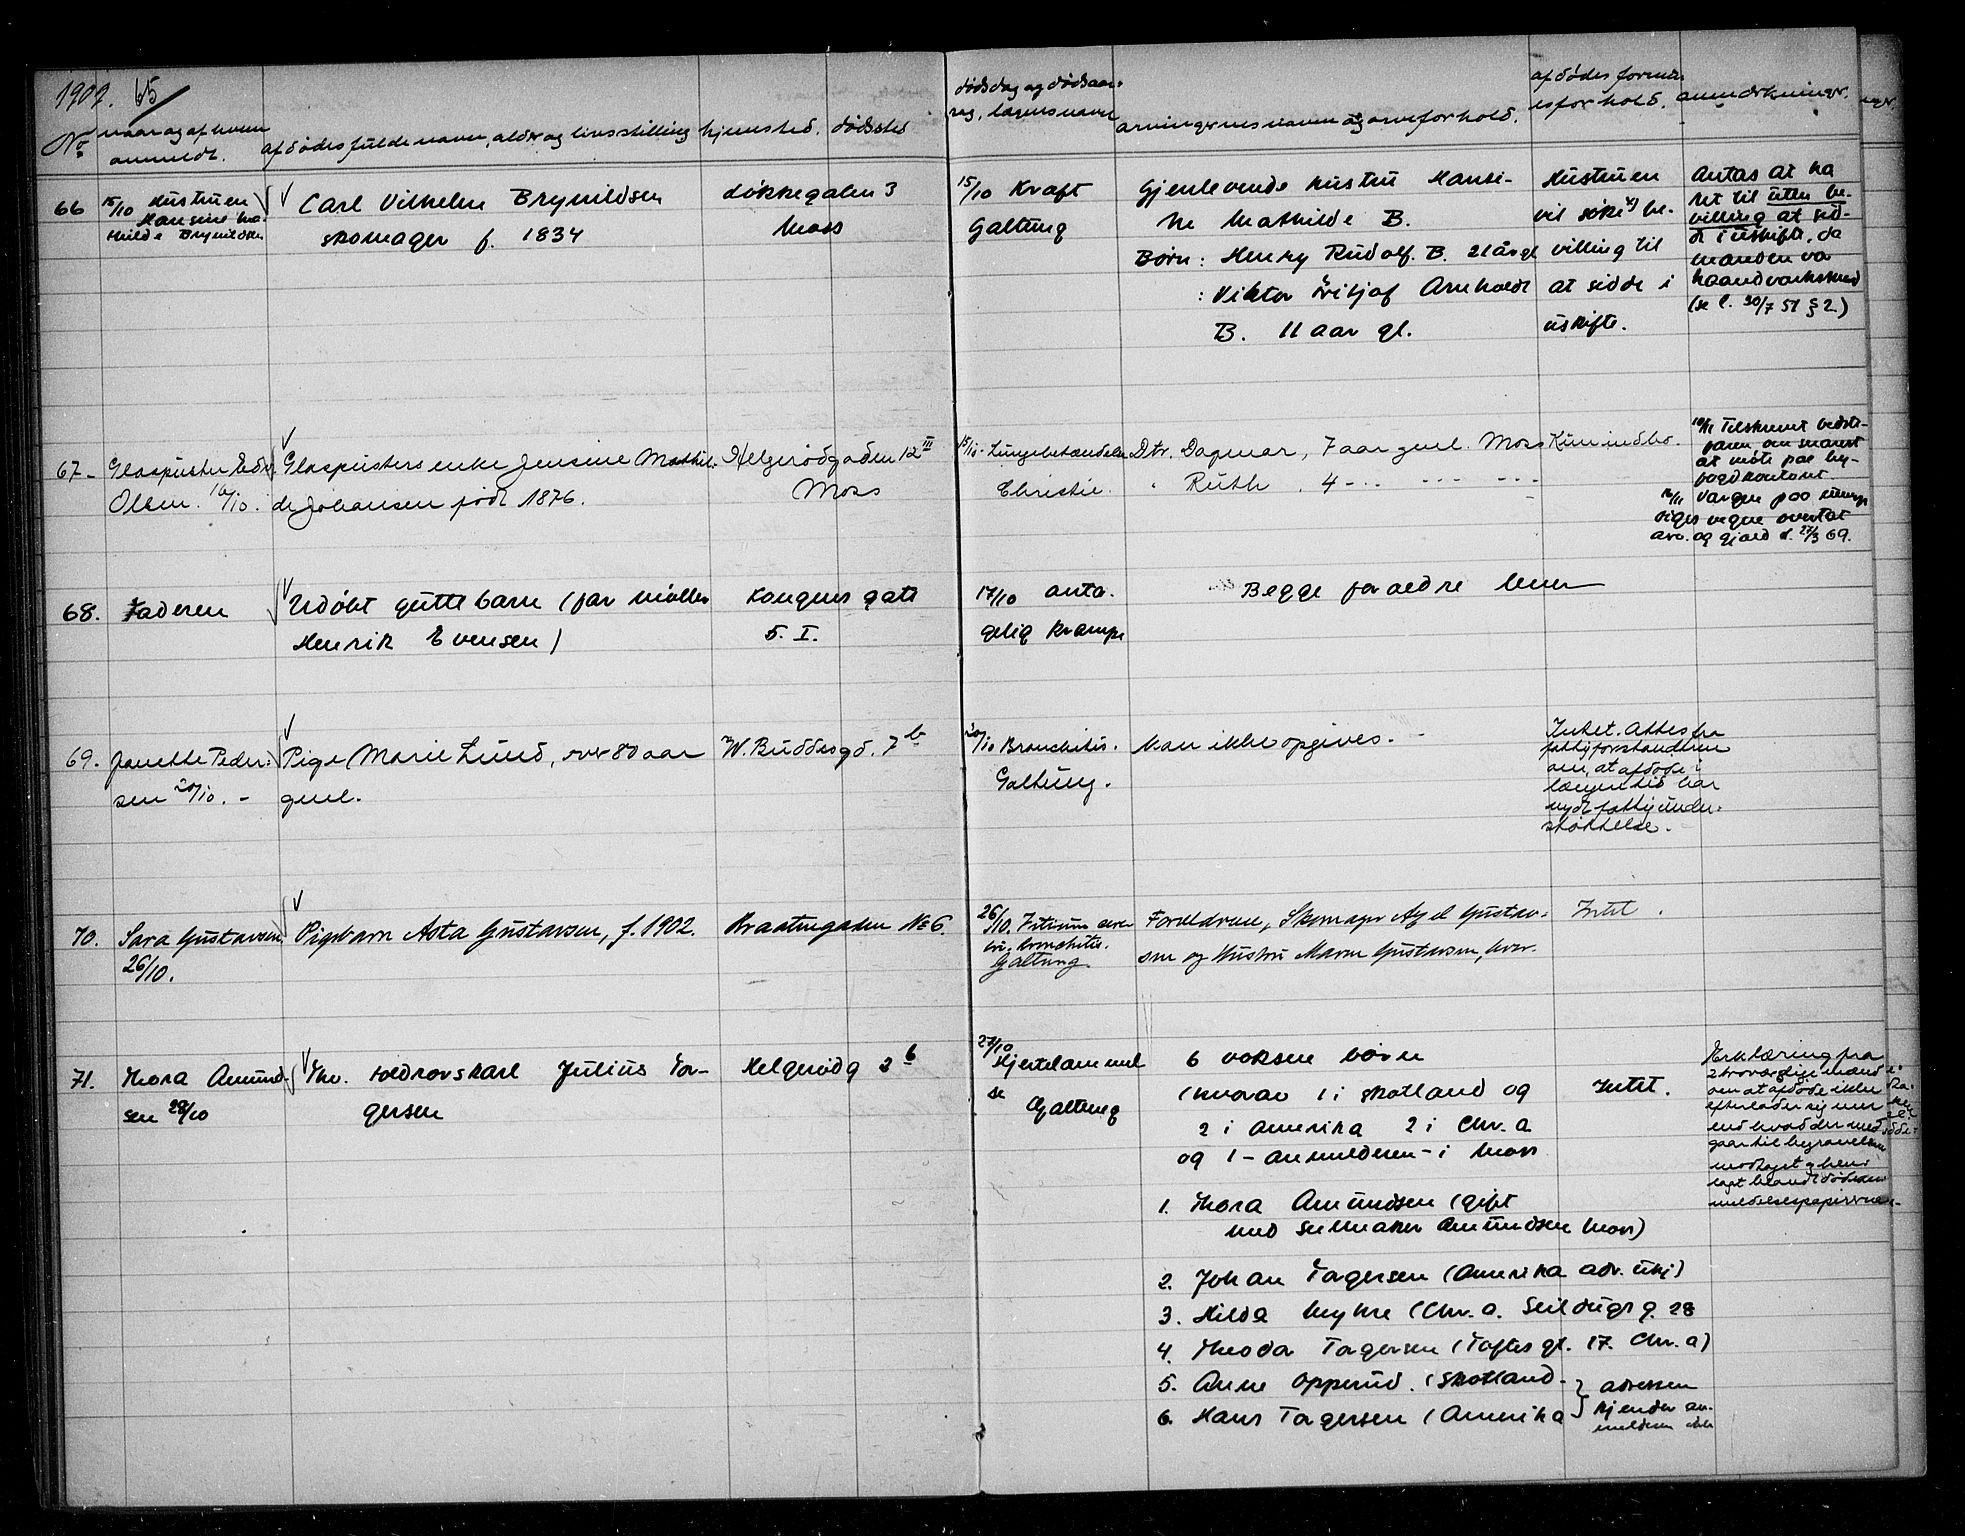 1907. 65
No
naar og af hvem
anmeldt.
afdødes fulde navn, alder og livsstilling
hjemsted.
dødssted
dødsdag og dødsaar-
sag, lægens navn
arvingernes navn og arveforhold.
afdødes formu-
esforhold.
anmerkninger.
66
15/10 Hustruen
Hansine Ma-
thilde Brynildsen
Carl Vilhelm Brynildsen
skomager f. 1834
Løkkegaten 3
Moss
15/10 Kræft
Galtung
Gjenlevende hustru Hansi-
ne Mathilde B.
Børn: Henry Rudolf. B. 21 år gl
: Viktor Fritjof Arnholdt
B. 11 aar gl.
Hustruen
vil søke be-
villing til
at sidde i
uskifte.
Antas at ha
ret til uten be-
villing at sid-
de i uskifte, da
manden var
haandverksmed
(se l. 30/7 51 § 2)
67-
Glaspuster Edv.
Olsen. 16/10.
Glaspusters enke Jensine Mathil-
de Johansen født 1876.
Helgerødgaden 12 III
Moss
15/10. Lungebetændelse
Christie.
Dtr. Dagmar, 7 aar gml. Moss
" Ruth, 4 - " - " -
Kun indbo.
Tilskrevet bedste-
faren om snarest
at møte paa by-
fogdkontoret.
Vergen paa umyn-
diges vegne overtat
arv. og gjæld d. 27/3 09.
68.
Faderen
Udøbt guttebarn (far møller
Henrik Evensen)
Kongens gate
5. I.
17/10 anta-
gelig krampe
Begge forældre lever
69.
Janette Peder-
sen 20/10. -
Pige Marie Lund, over 80 aar
gml.
W. Buddesgd. 7 b
20/10 Bronchitis.
Galtung.
Kan ikke opgives.
Intet. Attest fra
fattigforstanderen
om, at afdøde i
længere tid har
nydt fattigunder-
støttelse.
70.
Sara Gustavsen
26/10.
Pigebarn Asta Gustavsen, f. 1902.
Kraatengaden No 6.
26/10.
bronchitis.
Galtung.
Forældrene, Skomager Axel Gustav-
sen og Hustru Maren Gustavsen, lever.
Intet.
71.
Thora Amund-
sen 28/10
Julius Tor-
gersen
Helgerødg 2 b
27/10
Hjertelammel
se
Galtung
6 voksne børn
(hvorav 1 i Skotland og
2 i Amerika 2 i Chr.a
og 1 - anmelderen - i Moss
1. Thora Amundsen (gift
med Seilmaker Amundsen Moss)
2. Johan Torgersen (Amerika adr. ukj)
3. Hilda Myhre (Chr.a. Seildugsg. 28
4. Theodor Torgersen (Toftes gt. 17. Chr.a)
5. Anne Opperud. (Skotland-
6. Hans Torgersen (Amerika
adressen
kjender an-
melderen ikke
Intet.
Erklæring fra
2 troværdige mænd
om at afdøde ikke
efterlader sig mer
end hvad der med-
gaar til begravelsen
modtaget og hen-
lagt blandt dødsan-
meldelsespapirerne.